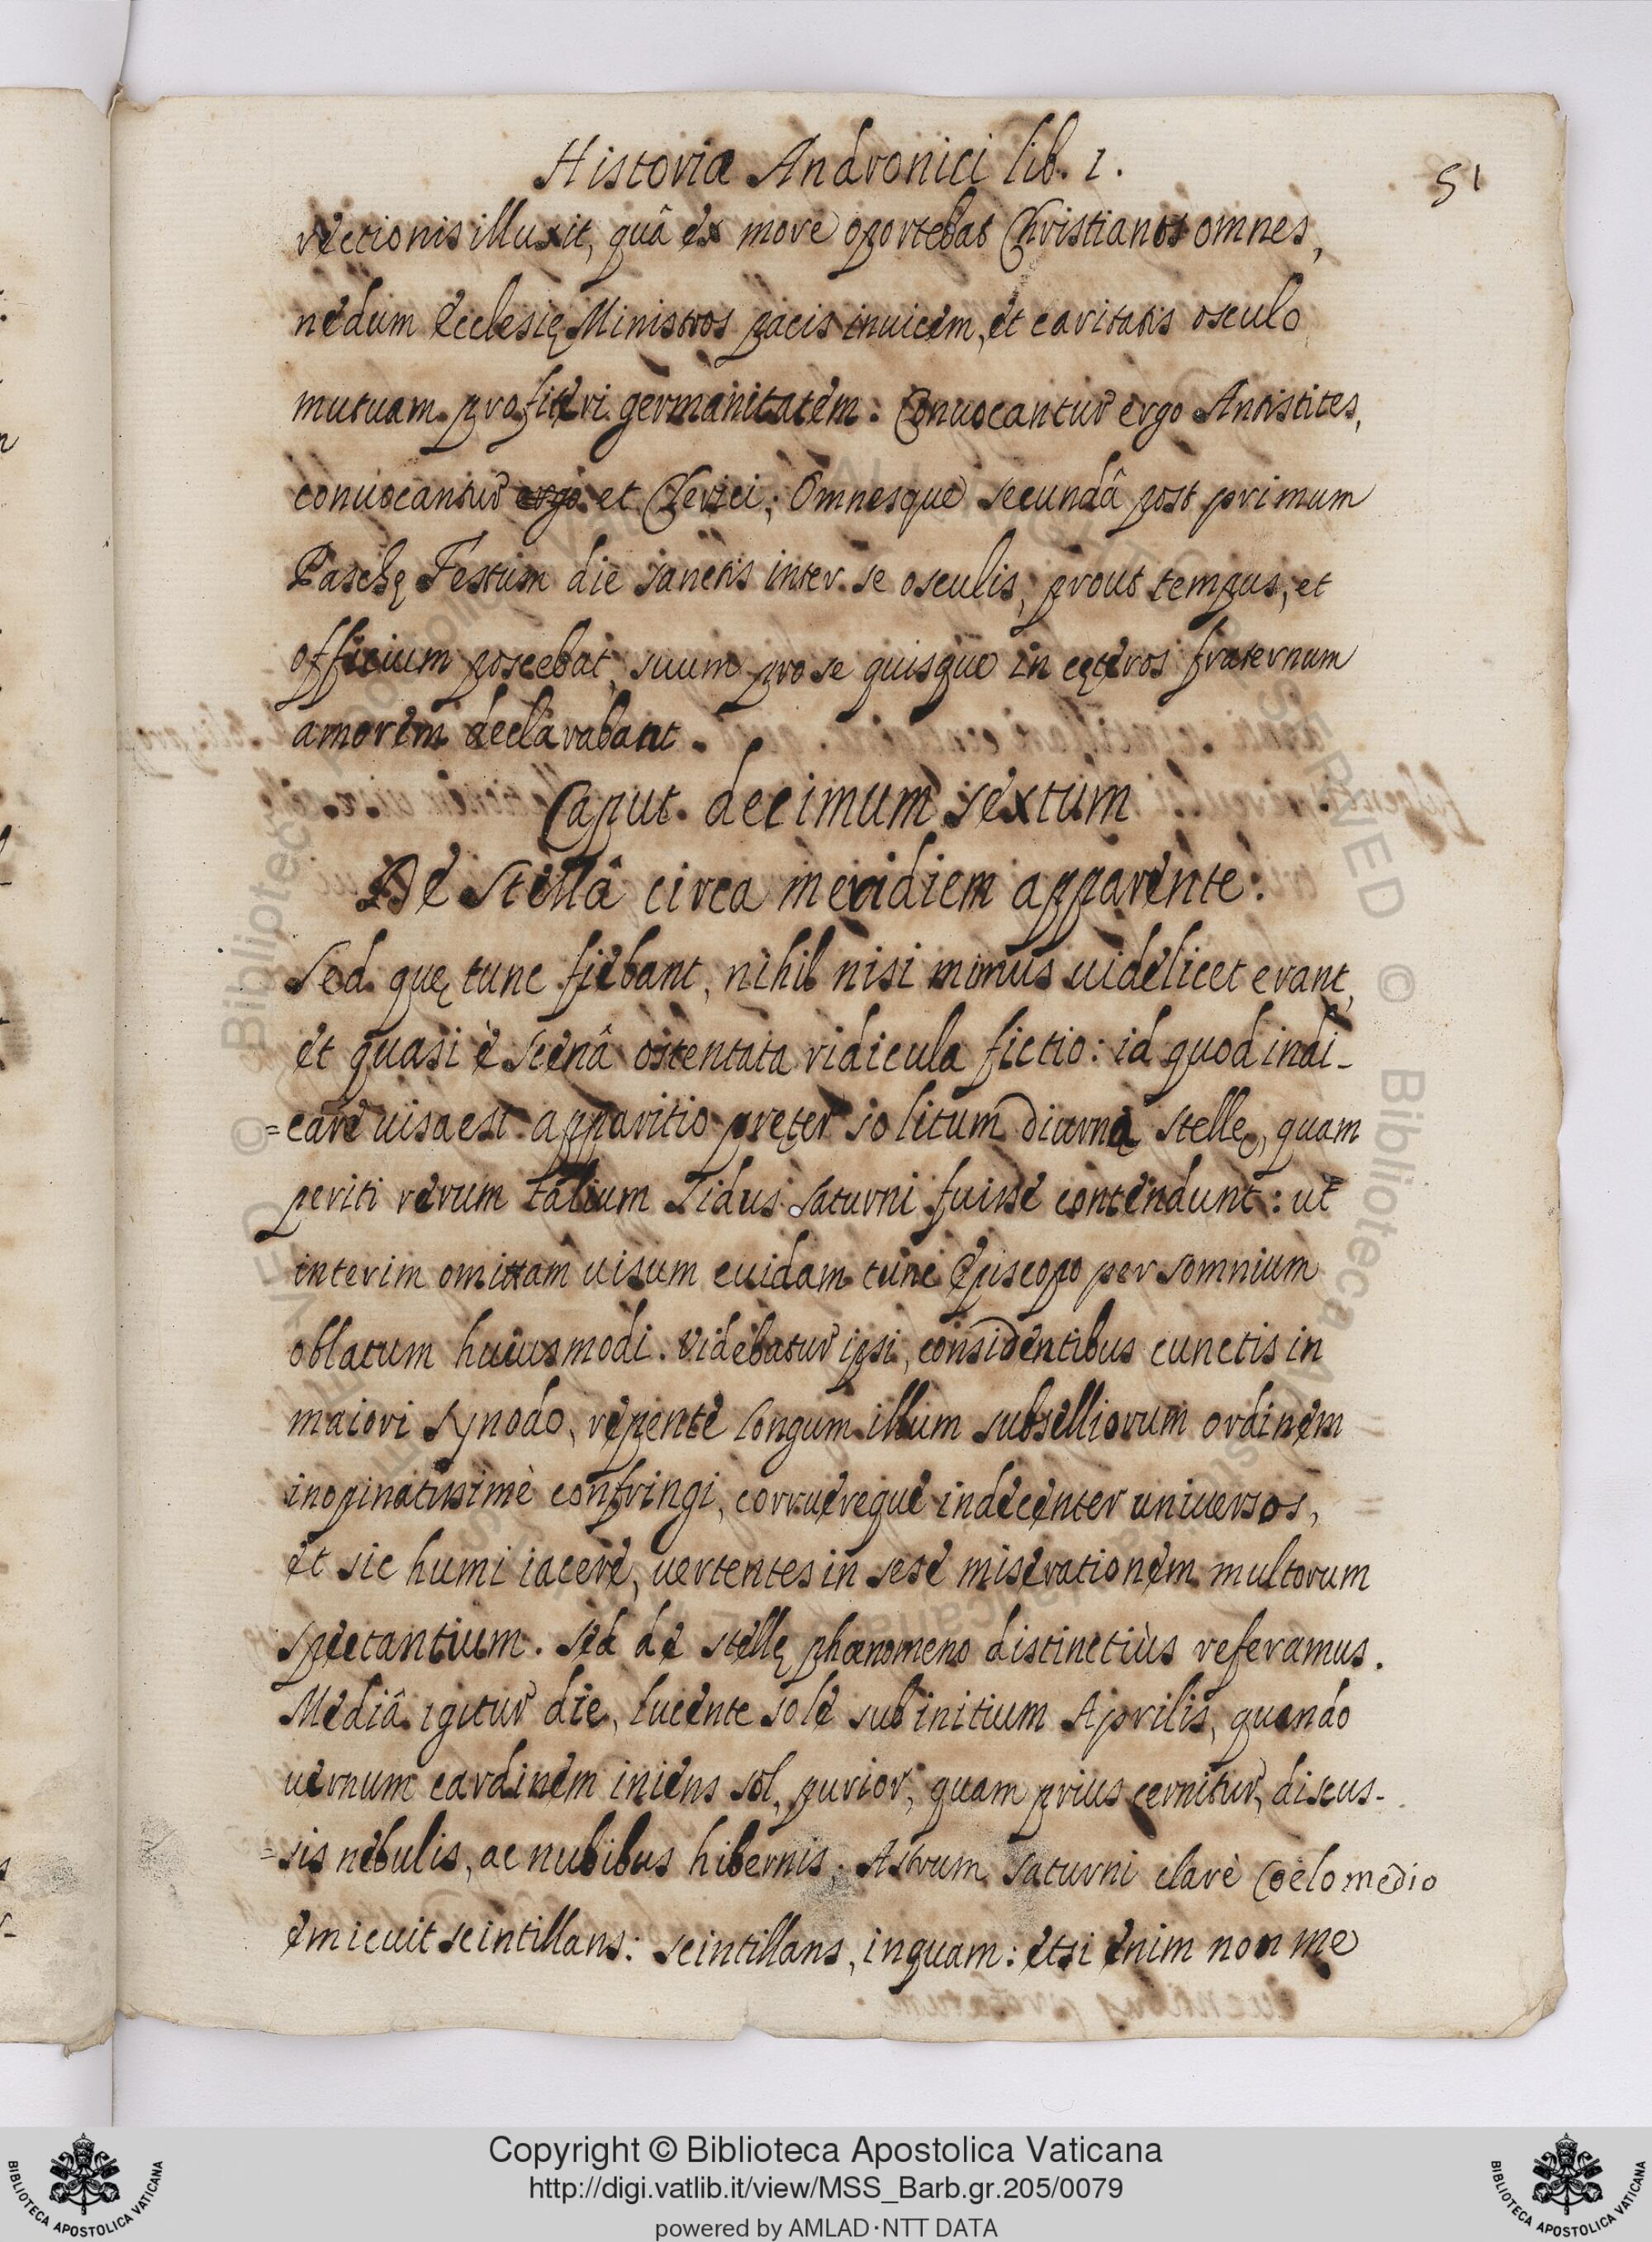 Historiæ Andronici lib. 1.
51
rectionis illuxit, quâ ex more oportebat Christianos omnes,
nedum Ecclesię Ministros pacis inuicem, et caritatis osculo
mutuam profiteri germanitatem. Conuocantur ergo Antistites,
conuocantur ergo et Clerici; Omnesque secundâ post primum
Paschę Festum die sanctis inter se osculis, prout tempus, et
officium poscebat, suum pro se quisque in cęteros fraternum
amorem declarabant.
Caput. decimum sextum
De Stellâ circa meridiem apparente.
Sed quę tunc fiebant, nihil nisi mimus uidelicet erant,
et quasi è scenâ ostentata ridicula fictio: id quod indi-
=care uisa est apparitio pręter solitum diurnę stellę, quam
periti rerum talium Sidus Saturni fuisse contendunt: ut
interim omittam uisum cuidam tunc Episcopo per somnium
oblatum huiusmodi. Videbatur ipsi, considentibus cunctis in
maiori Synodo, repente longum illum subselliorum ordinem
inopinatissimè confringi, corruereque indecenter uniuersos,
et sic humi iacere, uertentes in sese miserationem multorum
spectantium. Sed de stellę phœnomeno distinctiùs referamus.
Mediâ igitur die, lucente sole sub initium Aprilis, quando
uernum cardinem iniens sol, purior, quam prius cernitur, discus-
=sis nebulis, ac nubibus hibernis; Astrum Saturni clarè Coelo medio
emicuit scintillans: scintillans, inquam: etsi enim non me
Copyright © Biblioteca Apostolica Vaticana
http://digi.vatlib.it/view/MSS_Barb.gr.205/0079
powered by AMLAD·NTT DATA
BIBLIOTECA APOSTOLICA VATICANA
BIBLIOTECA APOSTOLICA VATICANA